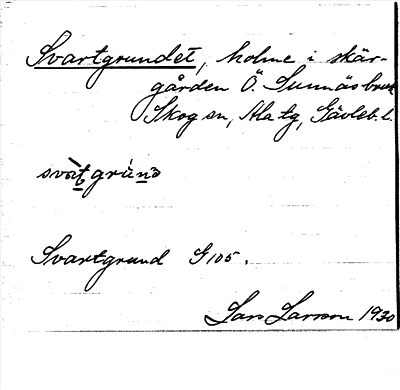 Svartgrundet, holme i skär-
gården Ö. Sunnäsbruk
Skog sn, Ala tg, Gävleb. l.
svàt̩grùn̩d
Svartgrund G 105.
Lars Larsson 1930